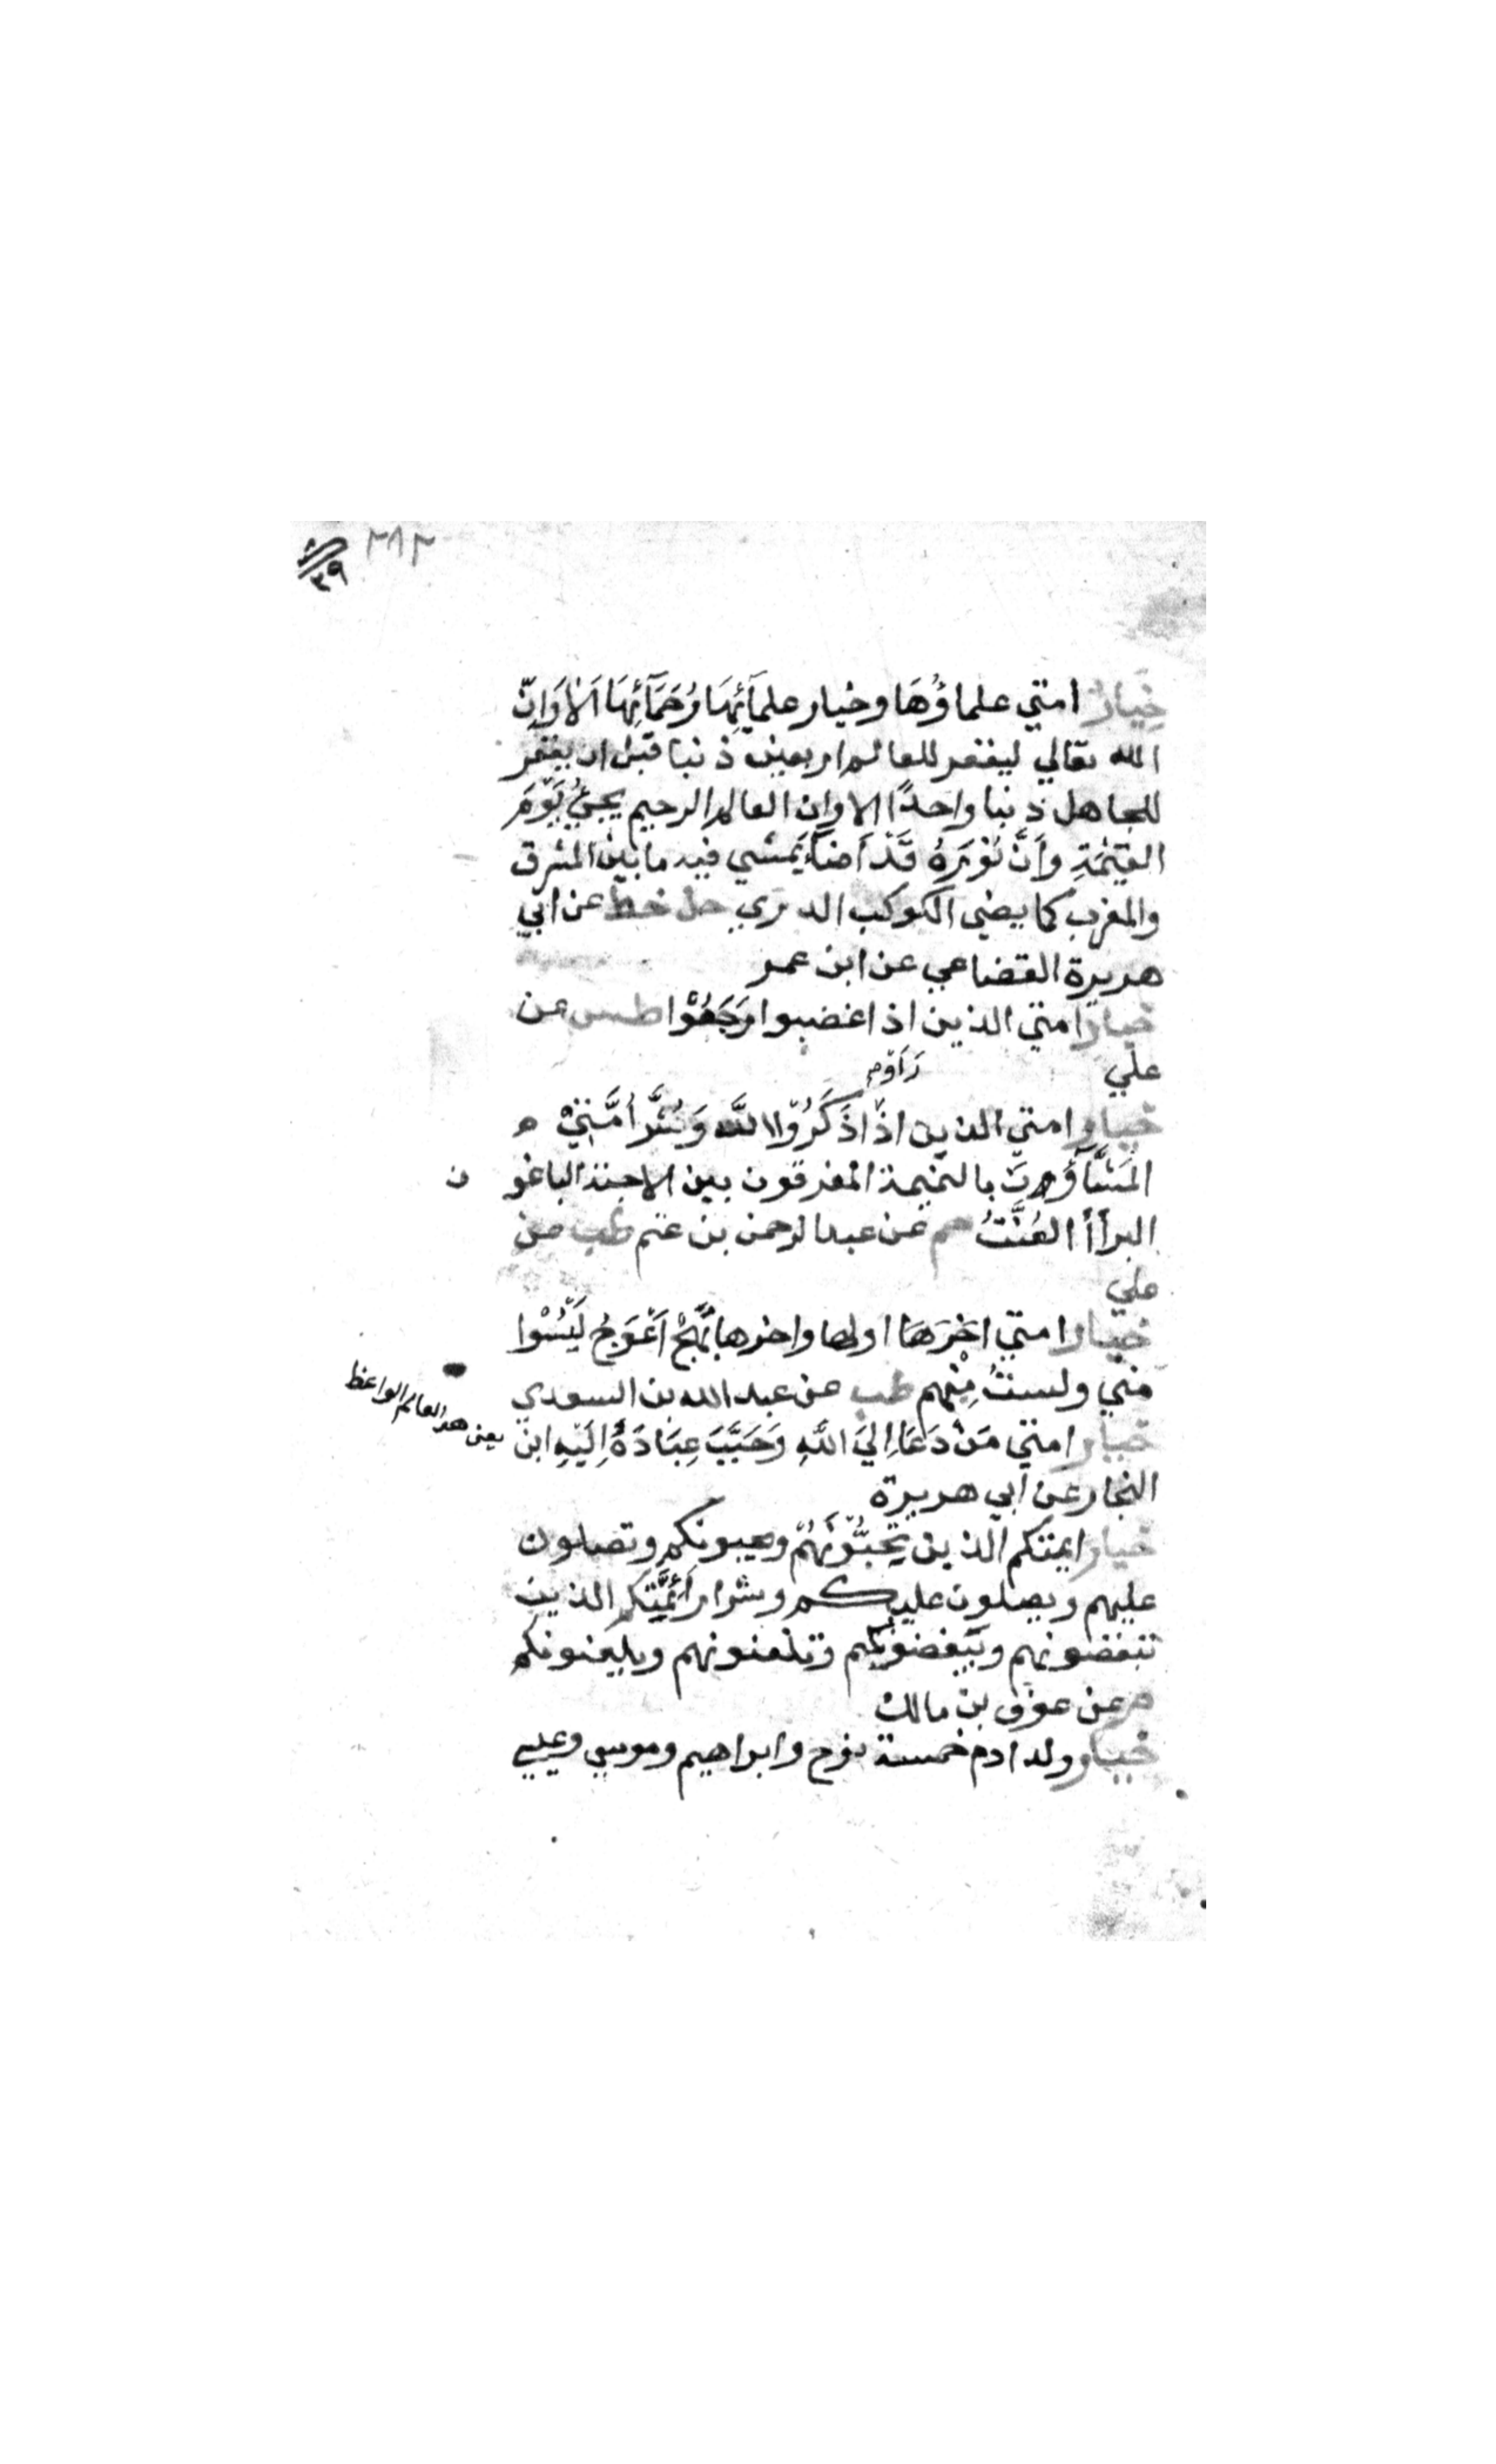 ٢٨٢
٣٩
خِيَارُ امتي علماؤُهَا وخيار علمآئِهَا رُحَمَآئِهَا اَلاَوَاِنّ
الله تعالي ليغفر للعالم اربعين ذنبا قبل ان يغفر
للجاهل ذنبا واحدًا الا وان العالم الرحيم يجيُّ يَوْمَ
القِيٰمَةِ وَاَنَّ نُوْرَهُ قَدْ اَضَآءَ يَمْشي فيه ما بين المشرق
والمغرب كما يضي الكوكب الدري حل خط عن ابي
هريرة القضاعي عن ابن عمر
خيار امتي الذين اذا غضبوا رَجَعُوْا طس عن
علي
رَاَوْم
خيار امتي الذين اذَا ذَكَرُوْا اللَّهَ وَشَرُّ اُمَّتِيْ
المَشَّآؤُنَ بالنميمة المفرقون بين الاحبة الباغو ن
البرأأ العُنَّتُ حم عن عبد الرحمن بن غنم طب عن
علي
خيار امتي اخرَهَا اولها واخرها نَهْجٌ اَعْوَجُ لَيْسُوْا
مني ولستُ مِنْهم طب عن عبد الله بن السعدي
خيار امتي مَنْ دَعَا اِليَ اللَّهِ وَحَبَّبَ عِبَادَهُ اِلَيْهِ ابن
يعني هذا العالم الواعظ
النجار عن ابي هريرة
خيار ايمتكم الذين تُحِبُّوْنَهُمْ ويحبونكم وتصلون
عليهم ويصلون عليكم وشرار اَئمَّتِكم الذين
تبغضونهم ويبغضونكم وتلعنونهم ويلعنونكم
م عن عوف بن مالك
خيار ولد ادم خمسة نوح وابراهيم وموسي وعيسي